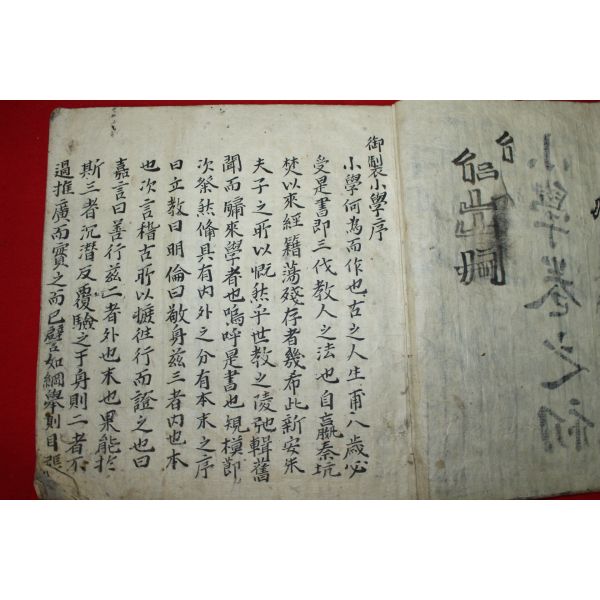 御製小學序
小學何為而作也古之人生甫八歲必
受是書即三代教人之法也自嬴秦坑
焚以來經籍蕩殘存者幾希此新安朱
夫子之所以慨然乎世教之陵弛輯舊
聞而牖來學者也嗚呼是書也規模節
次粲然備具有內外之分有本末之序
曰立教曰明倫曰敬身玆三者內也本
也次言稽古所以摭徃行而證之也曰
嘉言曰善行玆二者外也末也果能於
斯三者沉潜反覆驗之于身則二者不
過推廣而實之而已譬如綱舉則目張